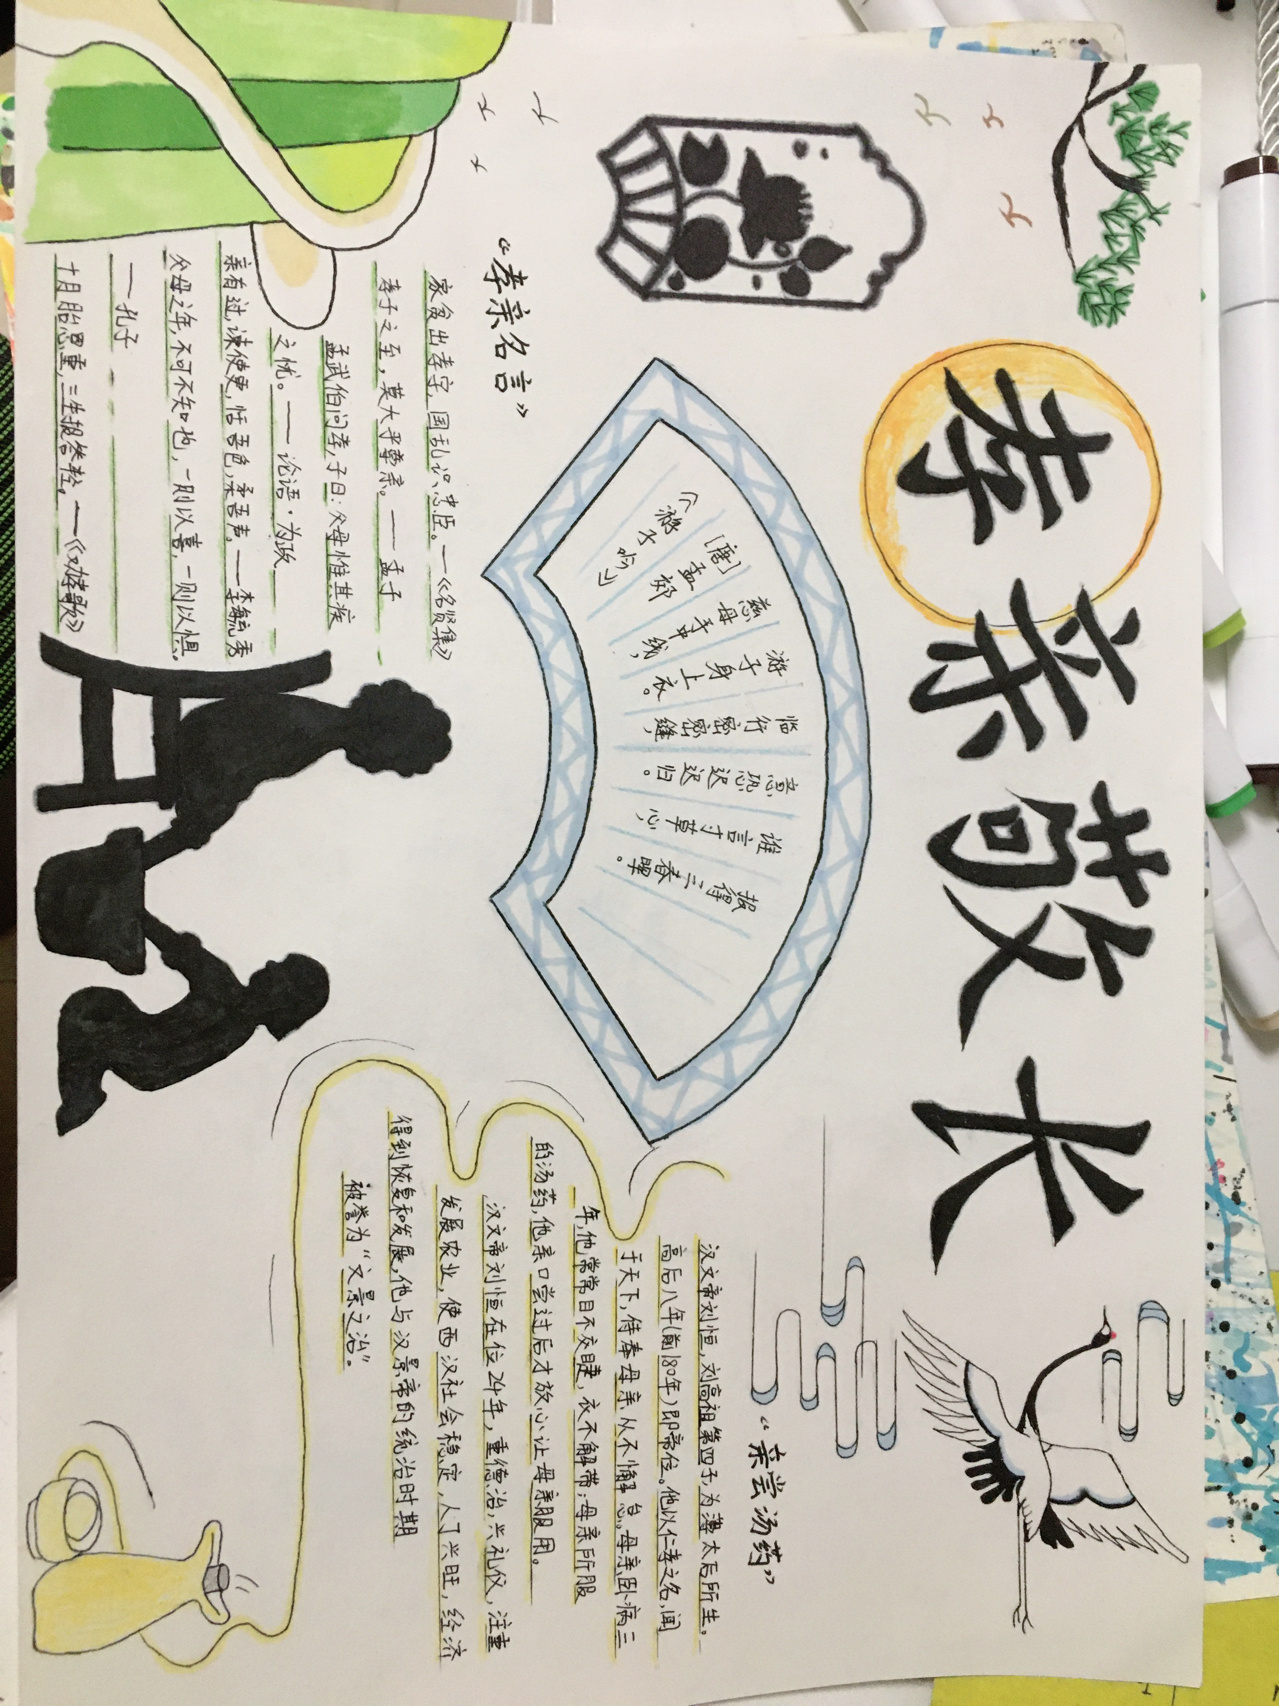 孝亲敬长
《游子吟》
[唐]孟郊
慈母手中线，
游子身上衣。
临行密密缝，
意恐迟迟归。
谁言寸草心，
报得三春晖。
“孝亲名言”
家贫出孝字，国乱识忠臣。——《名贤集》
孝子之至，莫大乎尊亲。——孟子
孟武伯问孝，子曰：父母惟其疾
之忧。——论语·为政
亲有过，谏使更，怡吾色，柔吾声。——李毓秀
父母之年，不可不知也，一则以喜，一则以惧。
——孔子
十月胎恩重，三生报答轻。——《劝孝歌》
“亲尝汤药”
汉文帝刘恒，刘高祖第四子，为薄太后所生。
高后八年(前180年)即帝位。他以仁孝之名，闻
于天下，侍奉母亲从不懈怠。母亲卧病三
年，他常常目不交睫，衣不解带；母亲所服
的汤药，他亲口尝过后才放心让母亲服用。
汉文帝刘恒在位24年，重德治，兴礼仪，注重
发展农业，使西汉社会稳定，人丁兴旺，经济
得到恢复和发展，他与汉景帝的统治时期
被誉为“文景之治”。